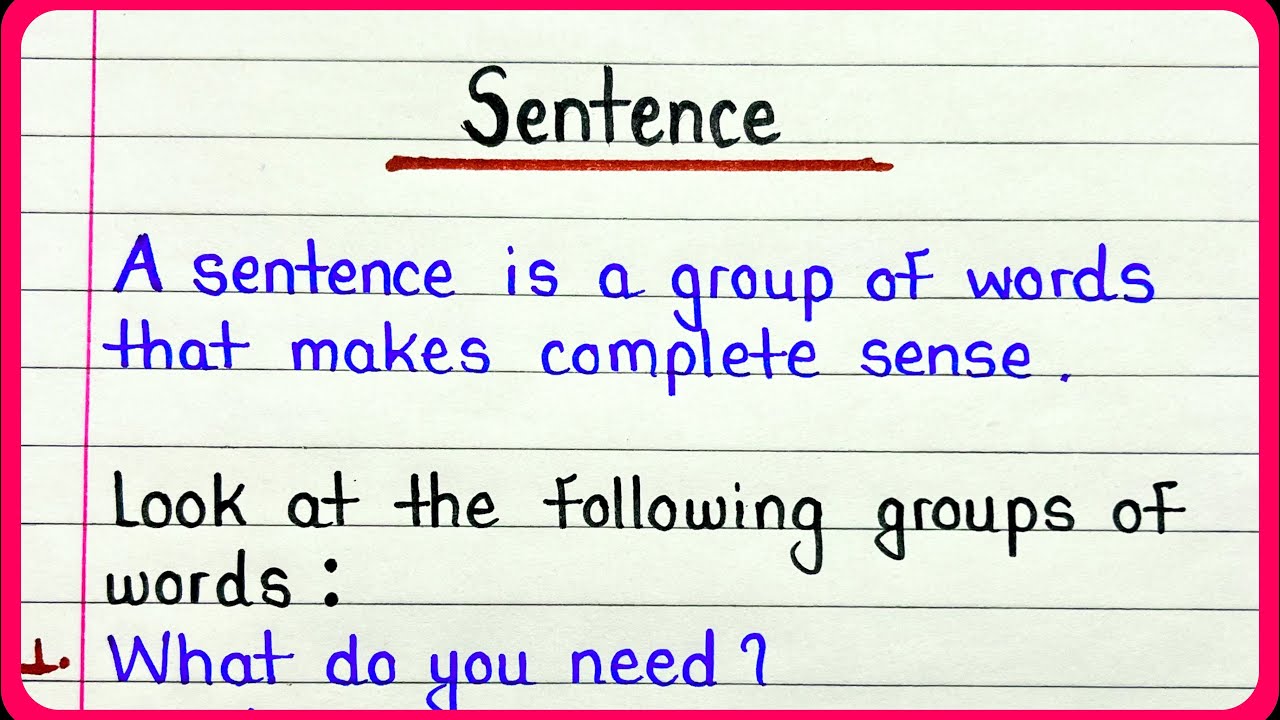 Sentence
A sentence is a group of words
that makes complete sense.
Look at the following groups of
words:
1. What do you need?